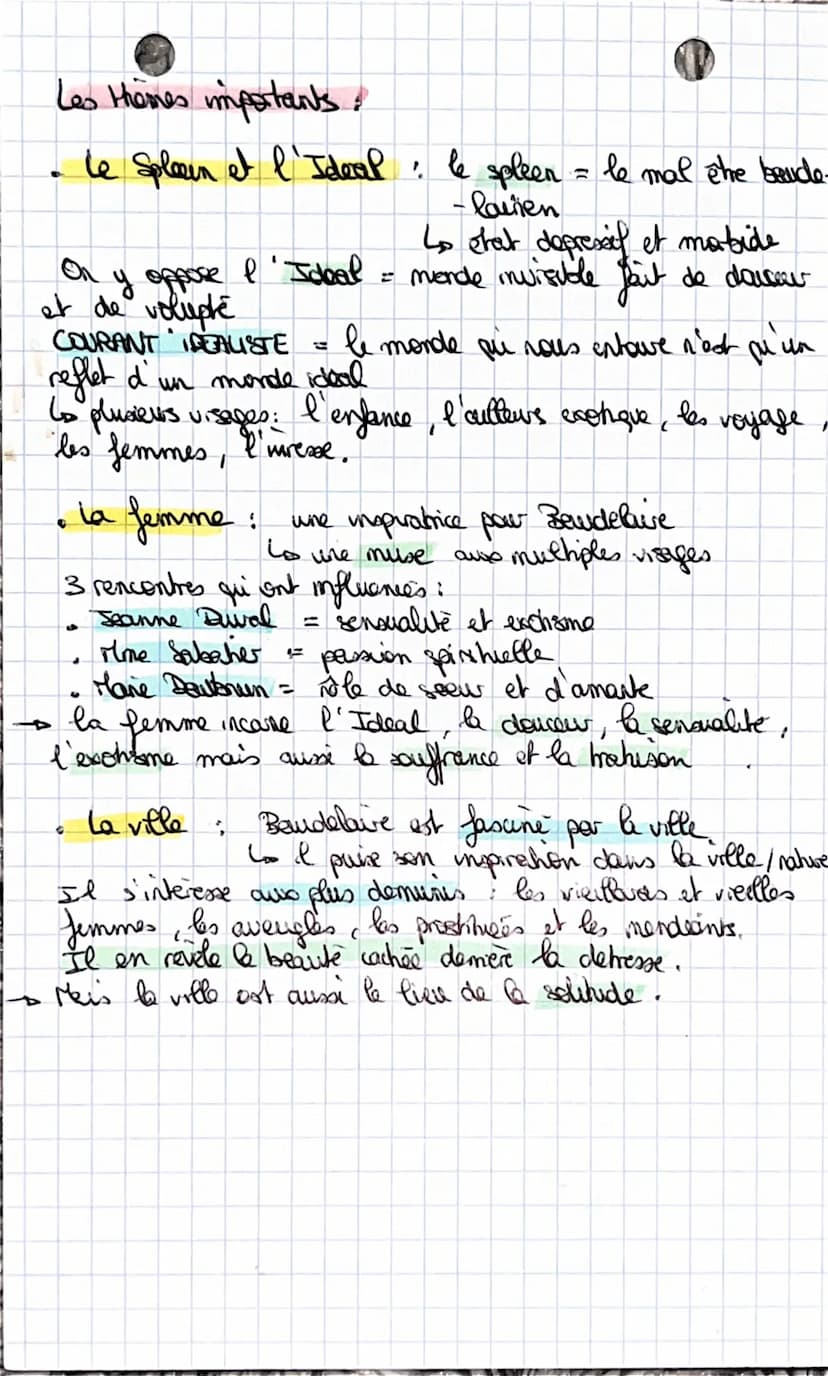 Les thèmes importants :
. Le Spleen et l'Ideal : le spleen = le mal être baude-
-lairien
↳ état depressif et morbide
On y oppose l'Ideal = monde invisible fait de douceur
et de volupté
COURANT IDEALISTE = le monde qui nous entoure n'est qu'un
reflet d'un monde ideal
↳ plusieurs visages : l'enfance, l'ailleurs exotique, les voyage,
les femmes, l'ivresse.
. La femme : une inspiratrice pour Baudelaire
↳ une muse aux multiples visages
3 rencontres qui ont influencés :
. Jeanne Duval = sensualité et exotisme
. Mme Sabatier = passion spirituelle
. Marie Daubrun = rôle de soeur et d'amante
→ la femme incarne l'Ideal, la douceur, la sensualité,
l'exotisme mais aussi la souffrance et la trahison
. La ville : Baudelaire est fasciné par la ville
↳ il puise son inspiration dans la ville / nature
Il s'intéresse aux plus demunis : les vieillards et vieilles
femmes, les aveugles, les prostituées et les mendiants.
Il en révèle la beauté cachée derrière la detresse.
→ Mais la ville est aussi le lieu de la solitude.